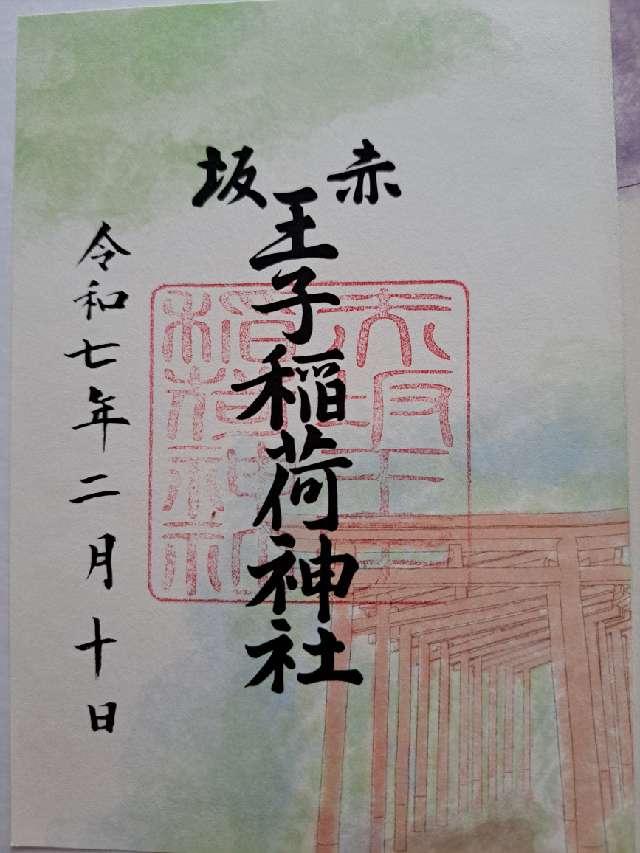 赤坂
王子稲荷神社
令和七年二月十日